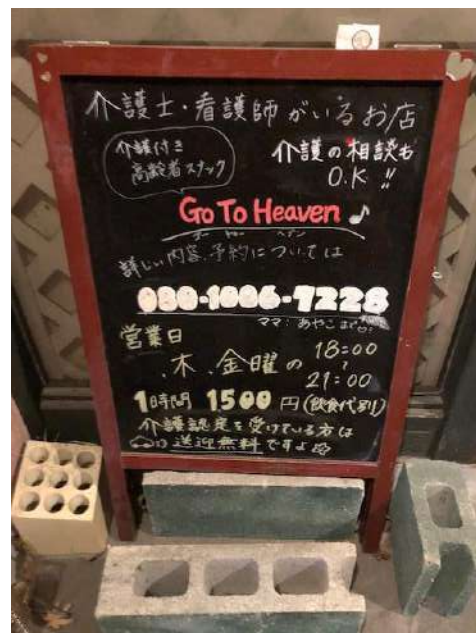 介護士・看護師がいるお店
介護付き
高齢者スナック
介護の相談も
O.K!!
Go To Heaven♪
ゴー トゥー ヘブン
詳しい内容、予約については
080-1006-7228
ママ:あやこまで
営業日
木、金曜の
18:00
〜
21:00
1時間 1500円(飲食代別)
介護認定を受けている方は
送迎無料ですよ